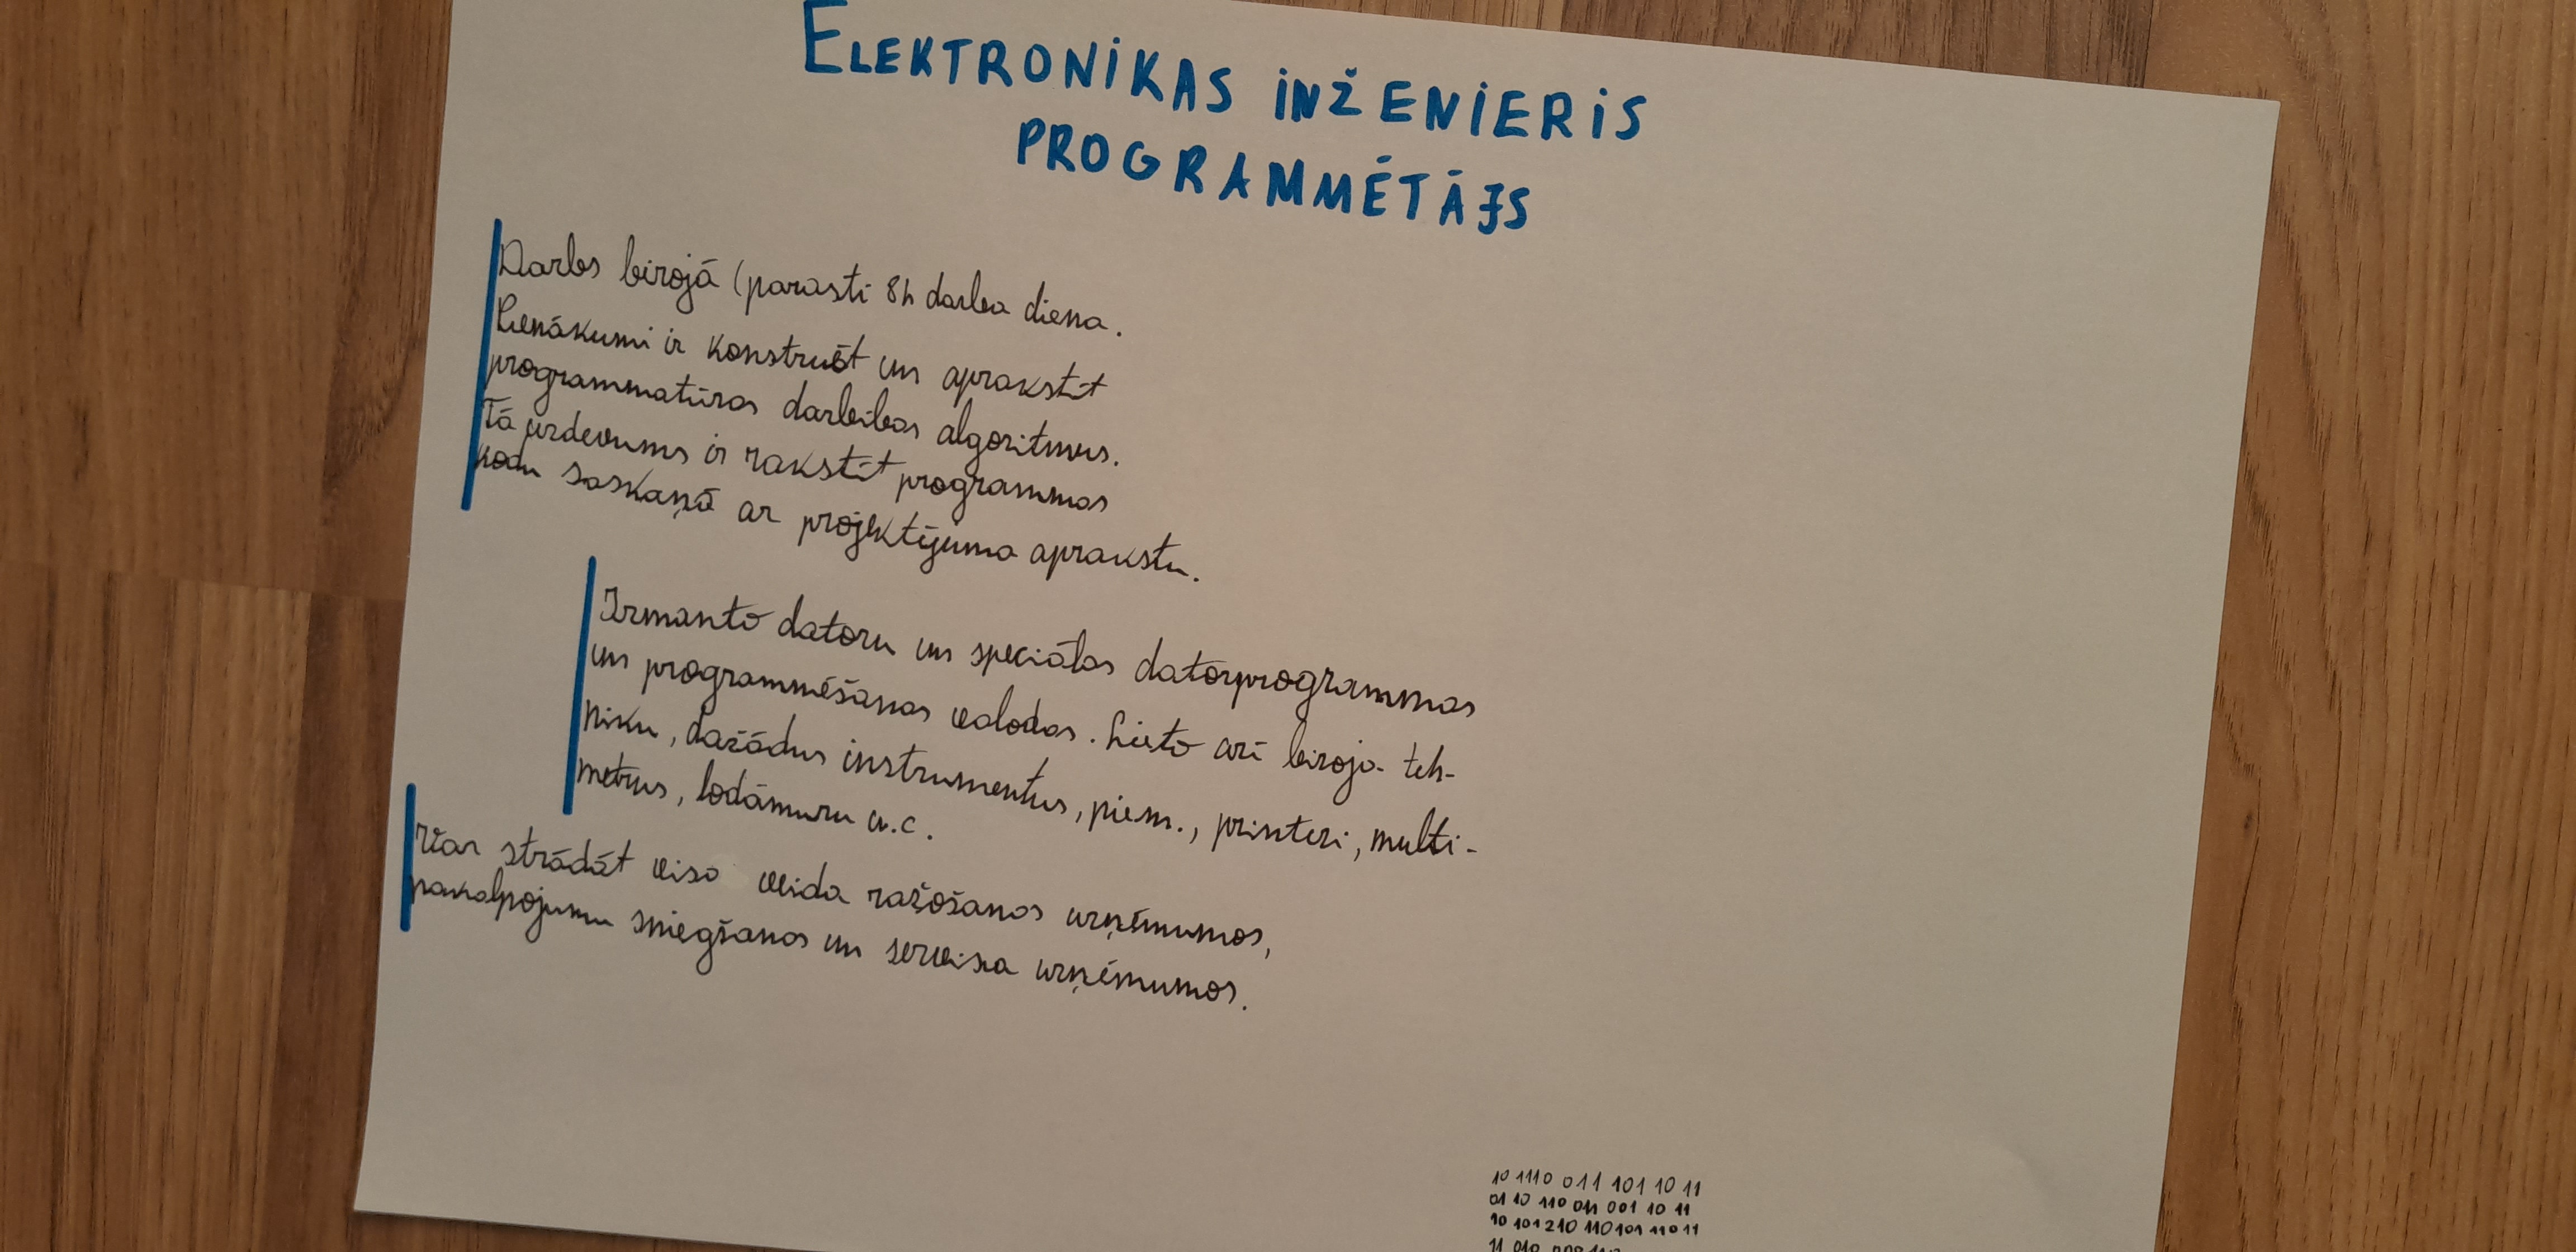 ELEKTRONIKAS INŽENIERIS
PROGRAMMĒTĀJS
Darbs birojā (parasti 8h darba diena.
Pienākumi ir konstruēt un aprakstīt
programmatūras darbības algoritmus.
Tā uzdevums ir rakstīt programmas
kodu saskaņā ar projektējuma aprakstu.
Izmanto datoru un speciālas datorprogrammas
un programmēšanas valodas. Lieto arī biroja teh-
niku, dažādus instrumentus, piem., printeri, multi-
metrus, lodāmuru u.c.
Var strādāt visa veida ražošanas uzņēmumos,
pakalpojumu sniegšanas un servisa uzņēmumos.
10 1110 011 101 10 11
01 10 110 011 001 10 11
10 101 210 110 101 110 11
11 010